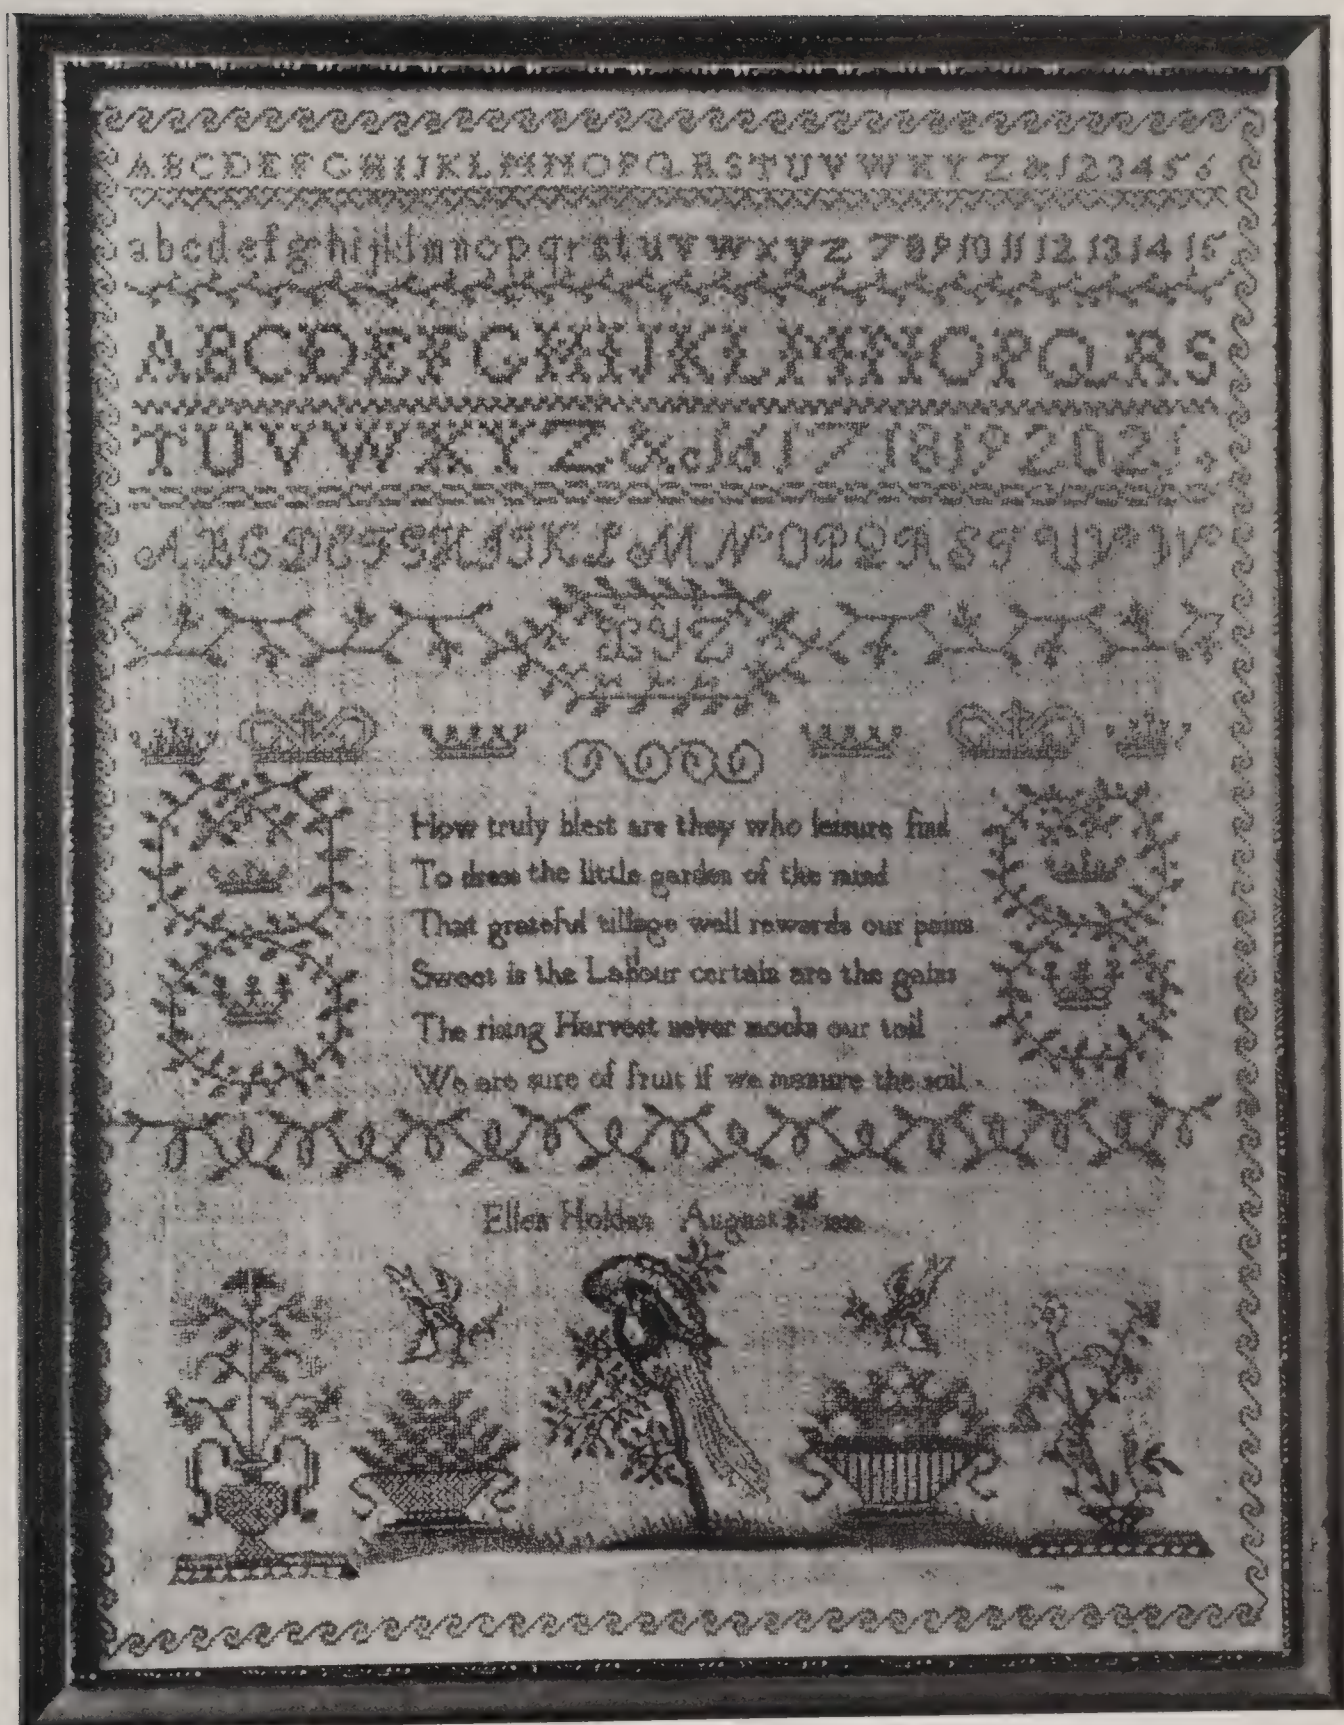 A B C D E F G H I J K L M N O P Q R S T U V W X Y Z & 1 2 3 4 5 6
a b c d e f g h i j k l m n o p q r s t u v w x y z 7 8 9 10 11 12 13 14 15
A B C D E F G H I J K L M N O P Q R S
T U V W X Y Z & c 16 17 18 19 20 21
A B C D E F G H I J K L M N O P Q R S T U V W
X Y Z
How truly blest are they who leisure find
To dress the little garden of the mind
That grateful tillage well rewards our pains
Sweet is the Labour certain are the gains
The rising Harvest never mocks our toil
We are sure of fruit if we manure the soil
Ellen Holden August